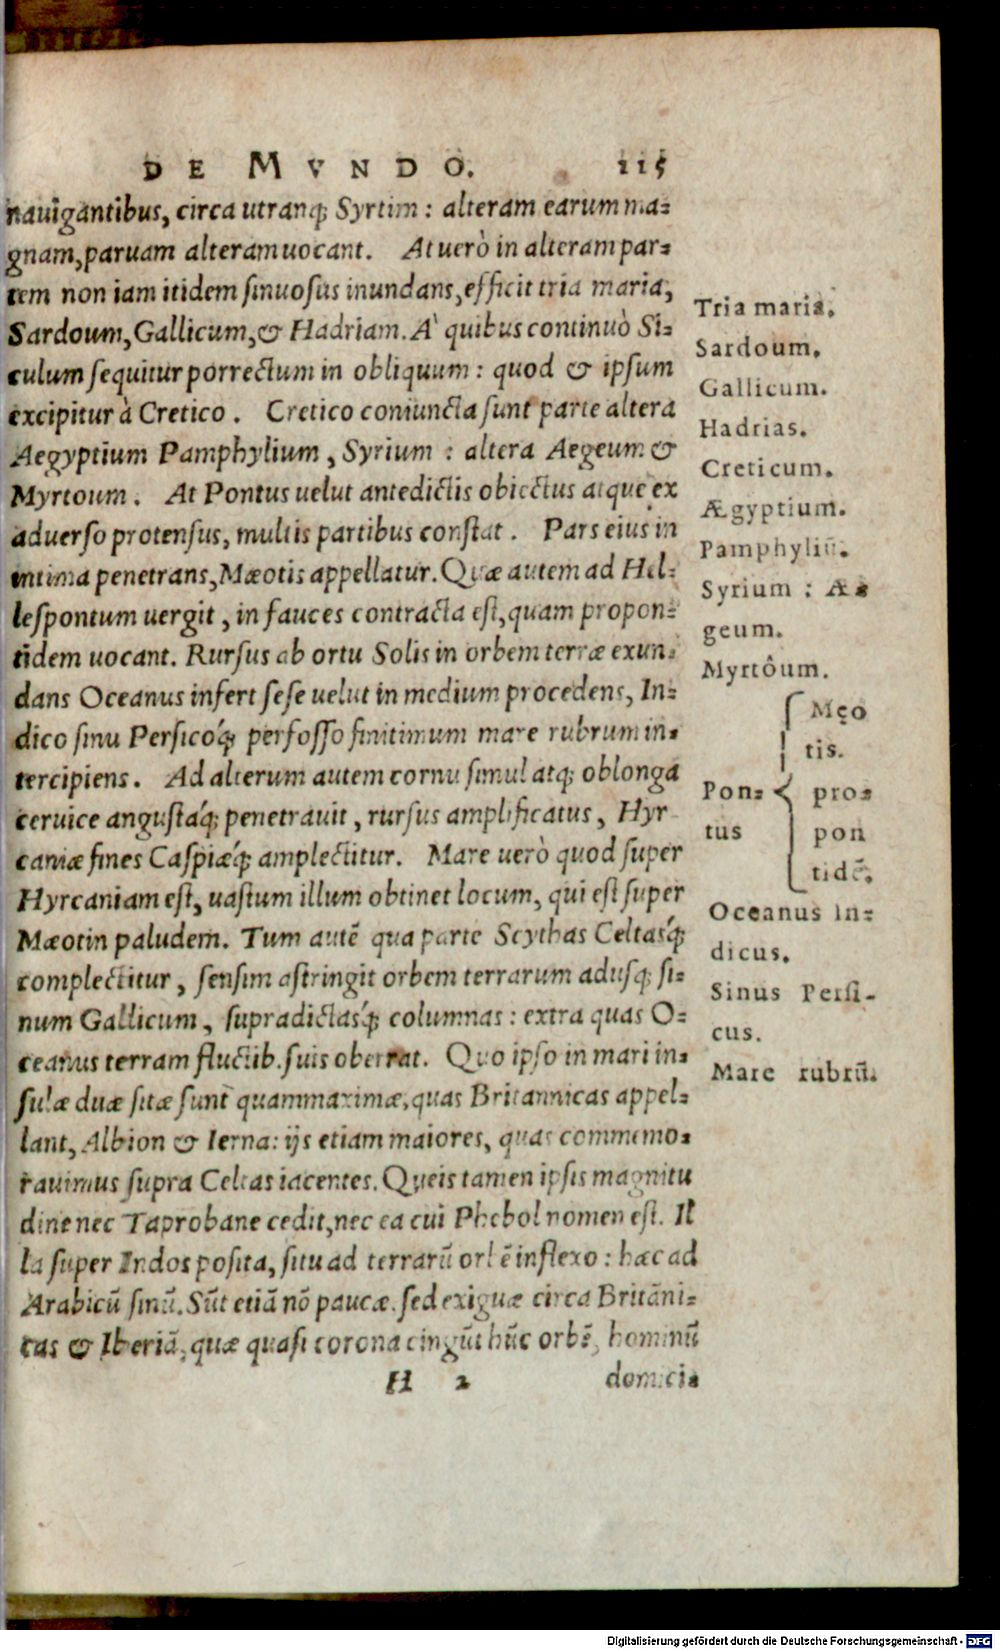 DE MVNDO. 115
nauigantibus, circa utranq; Syrtim: alteram earum ma-
gnam, paruam alteram uocant. At uerò in alteram par-
tem non iam itidem sinuosus inundans, efficit tria maria,
Sardoum, Gallicum, & Hadriam. A` quibus continuò Si-
culum sequitur porrectum in obliquum: quod & ipsum
excipitur à Cretico. Cretico coniuncta sunt parte altera
Aegyptium Pamphylium, Syrium: altera Aegeum &
Myrtoum. At Pontus uelut antedictis obiectus atque ex
aduerso protensus, multis partibus constat. Pars eius in
intima penetrans, Mæotis appellatur. Quæ autem ad Hel-
lespontum uergit, in fauces contracta est, quam propon-
tidem uocant. Rursus ab ortu Solis in orbem terræ exun-
dans Oceanus infert sese uelut in medium procedens, In-
dico sinu Persicóq; perfosso finitimum mare rubrum in-
tercipiens. Ad alterum autem cornu simul atq; oblonga
ceruice angustáq; penetrauit, rursus amplificatus, Hyr
caniæ fines Caspiǽq; amplectitur. Mare uerò quod super
Hyrcaniam est, uastum illum obtinet locum, qui est super
Mæotin paludem. Tum autē qua parte Scythas Celtasq́;
complectitur, sensim astringit orbem terrarum adusq; si-
num Gallicum, supradictasq́; columnas: extra quas O-
ceanus terram fluctib. suis oberrat. Quo ipso in mari in-
sulæ duæ sitæ sunt quammaximæ, quas Britannicas appel-
lant, Albion & Ierna: ijs etiam maiores, quas commemo-
rauimus supra Celtas iacentes. Queis tamen ipsis magnitu
dine nec Taprobane cedit, nec ea cui Phebol nomen est. Il
la super Indos posita, situ ad terrarū orbē inflexo: hæc ad
Arabicū sinū. Sūt etiā nō paucæ. sed exiguæ circa Britāni-
cas & Iberiā, quæ quasi corona cingūt hūc orbē, hominū
H 2 domici-
Tria maria.
Sardoum.
Gallicum.
Hadrias.
Creticum.
Ægyptium.
Pamphyliū.
Syrium: Æ-
geum.
Myrtôum.
Męo
tis.
Pon- pro-
tus pon
tidē.
Oceanus In-
dicus.
Sinus Persi-
cus.
Mare rubrū.
Digitalisierung gefördert durch die Deutsche Forschungsgemeinschaft - DFG